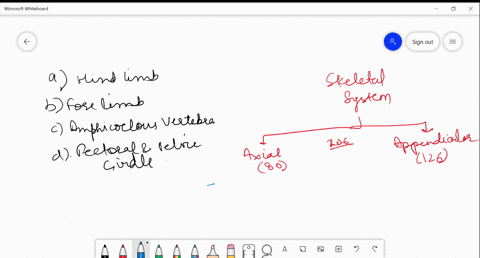 Microsoft Whiteboard
Sign out
a) Hind limb
b) Fore limb
c) Amphicoelous vertebra
d). Pectoral & pelvic
Girdle
Skeletal
System
206
Axial
(80)
Appendicular
(126)